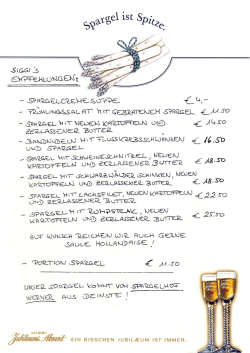 Spargel ist Spitze.
SIGGI'S
EMPFEHLUNGEN:
- SPARGELCREMESUPPE € 4,-
- FRÜHLINGSSALAT MIT GEBRATENEM SPARGEL € 11.50
- SPARGEL MIT NEUEN KARTOFFELN UND € 14.50
ZERLASSENER BUTTER
- BANDNUDELN MIT FLUSSKREBSSCHWÄNZEN € 16.50
UND SPARGEL
- SPARGEL MIT SCHWEINESCHNITZEL, NEUEN
KARTOFFELN UND ZERLASSENER BUTTER € 18.50
- SPARGEL MIT SCHWARZWÄLDER SCHINKEN, NEUEN
KARTOFFELN UND ZERLASSENER BUTTER € 18.50
- SPARGEL MIT LACHSFILET, NEUEN KARTOFFELN € 22.50
UND ZERLASSENER BUTTER
- SPARGEL MIT RUMPSTEAK, NEUEN
KARTOFFELN UND ZERLASSENER BUTTER € 25.50
AUF WUNSCH REICHEN WIR AUCH GERNE
SAUCE HOLLANDAISE!
- PORTION SPARGEL € 11.50
UNSER SPARGEL KOMMT VON SPARGELHOF
WERNER AUS DEINSTE!
EIN BISSCHEN JUBILÄUM IST IMMER.